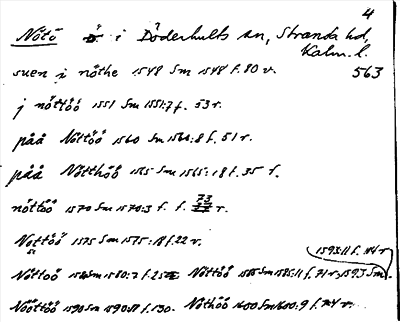 4
Nötö ö i Döderhults sn, Stranda hd,
Kalm. l.
suen i nöthe 1548 Sm 1548 f. 80 v. 563
j nöttöö 1551 Sm 1551:7 f. 53 r.
påå Nöttöö 1560 Sm 1560:8 f. 51 r.
påå Nötthöö 1565 Sm 1565:18 f. 35 r.
nöttöö 1570 Sm 1570:3 f. 73 r.
Nottöö 1575 Sm 1575:18 f. 22 r.
1593:11 f. 114 r
Nöttoö Sm 1580:7 f. Nöttöö 1585 Sm 1585:11 f. 71 r. 1593 Sm
Nööttöö 1590 Sm 1590: f. 130. Nöthöö 1600 Sm 1600:9 f. 74 r.